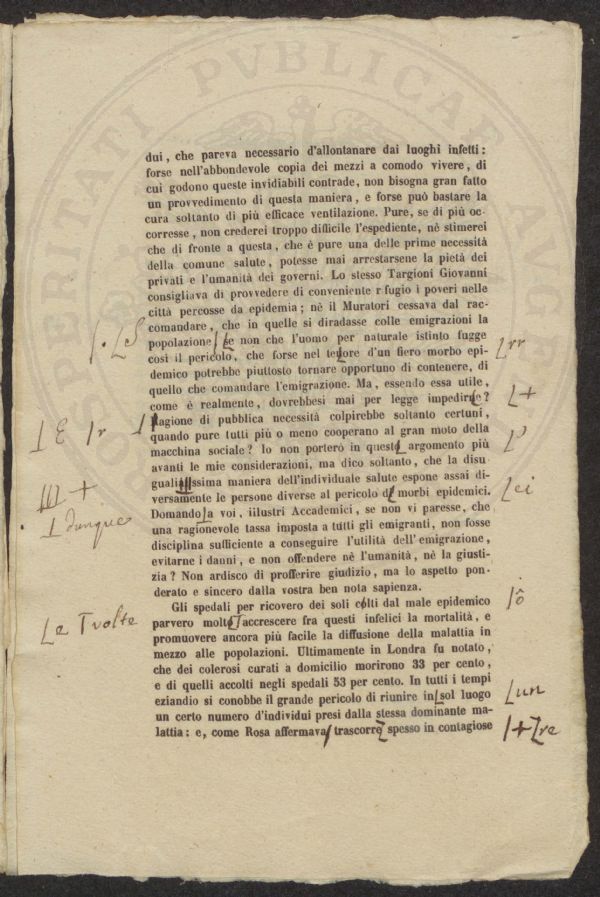 dui, che pareva necessario d'allontanare dai luoghi infetti:
forse nell'abbondevole copia dei mezzi a comodo vivere, di
cui godono queste invidiabili contrade, non bisogna gran fatto
un provvedimento di questa maniera, e forse può bastare la
cura soltanto di più efficace ventilazione. Pure, se di più oc-
corresse, non crederei troppo difficile l'espediente, nè stimerei
che di fronte a questa, che è pure una delle prime necessità
della comune salute, potesse mai arrestarsene la pietà dei
privati e l'umanità dei governi. Lo stesso Targioni Giovanni
consigliava di provvedere di conveniente r fugio i poveri nelle
città percosse da epidemia; nè il Muratori cessava dal rac-
comandare, che in quelle si diradasse colle emigrazioni la
popolazione se non che l'uomo per naturale istinto fugge
così il pericolo, che forse nel terore d'un fiero morbo epi-
demico potrebbe piuttosto tornare opportuno di contenere, di
quello che comandare l'emigrazione. Ma, essendo essa utile,
come è realmente, dovrebbesi mai per legge impedirne?
Ragione di pubblica necessità colpirebbe soltanto certuni,
quando pure tutti più o meno cooperano al gran moto della
macchina sociale? Io non porterò in questo argomento più
avanti le mie considerazioni, ma dico soltanto, che la disu
gualissima maniera dell'individuale salute espone assai di-
versamente le persone diverse al pericolo di morbi epidemici.
Domando a voi, iilustri Accademici, se non vi paresse, che
una ragionevole tassa imposta a tutti gli emigranti, non fosse
disciplina sufficiente a conseguire l'utilità dell'emigrazione,
evitarne i danni, e non offendere nè l'umanità, nè la giusti-
zia? Non ardisco di profferire giudizio, ma lo aspetto pon-
derato e sincero dalla vostra ben nota sapienza.
Gli spedali per ricovero dei soli colti dal male epidemico
parvero molte accrescere fra questi infelici la mortalità, e
promuovere ancora più facile la diffusione della malattia in
mezzo alle popolazioni. Ultimamente in Londra fu notato,
che dei colerosi curati a domicilio morirono 33 per cento,
e di quelli accolti negli spedali 53 per cento. In tutti i tempi
eziandio si conobbe il grande pericolo di riunire in sol luogo
un certo numero d'individui presi dalla stessa dominante ma-
lattia: e, come Rosa affermava trascorre spesso in contagiose
rr
E
r
+
ei
dunque
ô
e
volte
un
re